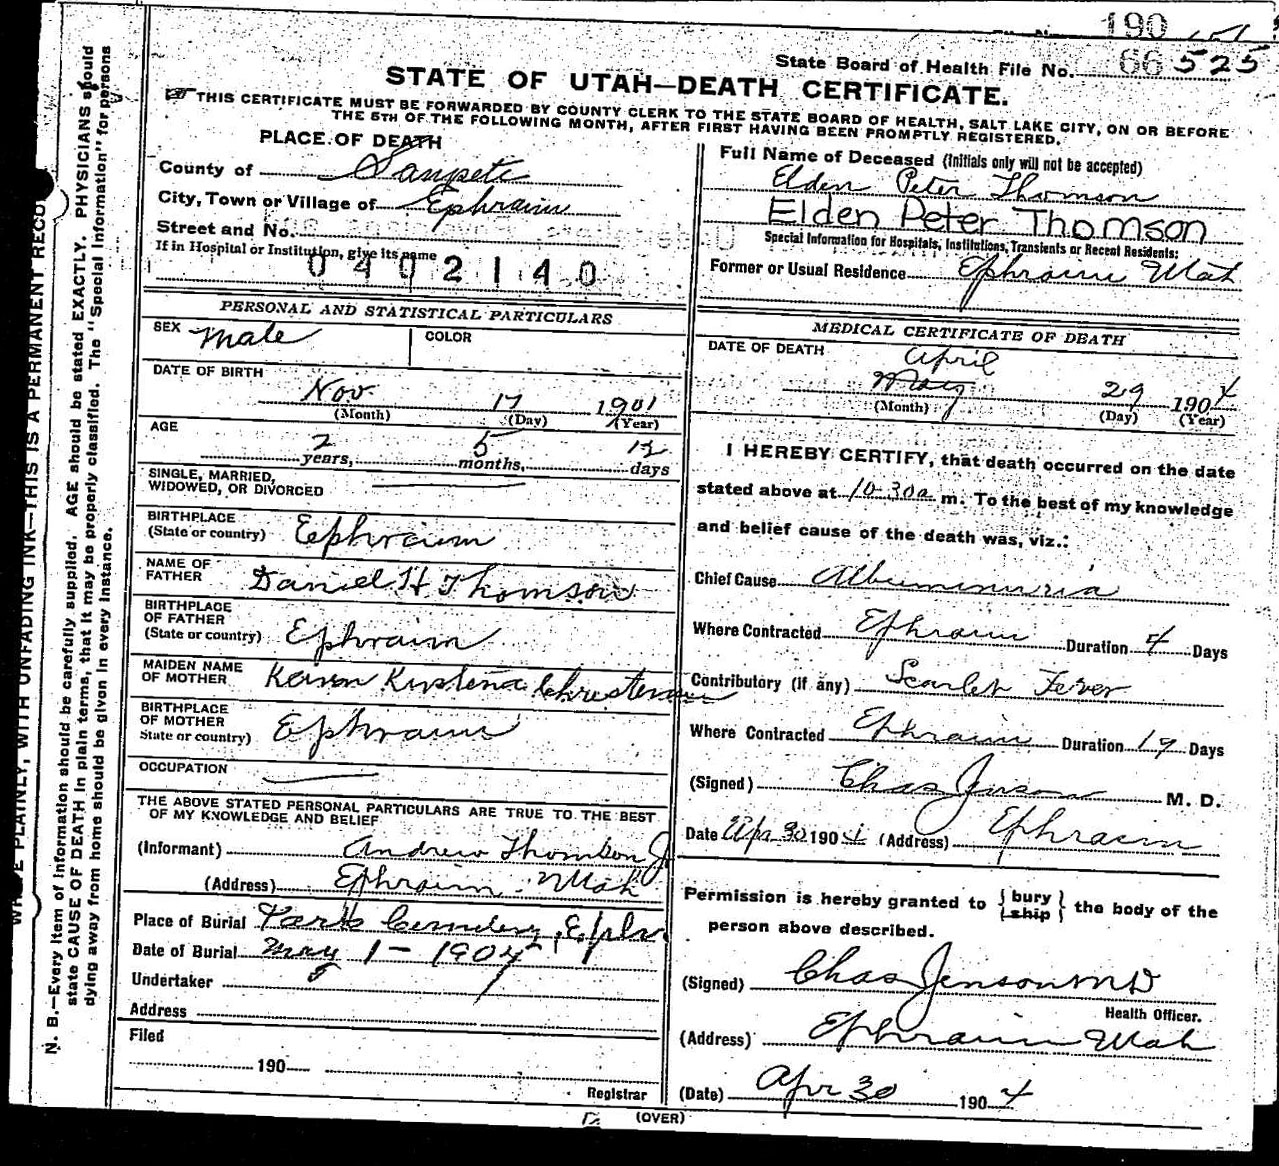 190
State Board of Health File No. 66 525
STATE OF UTAH—DEATH CERTIFICATE.
THIS CERTIFICATE MUST BE FORWARDED BY COUNTY CLERK TO THE STATE BOARD OF HEALTH, SALT LAKE CITY, ON OR BEFORE
THE 5TH OF THE FOLLOWING MONTH, AFTER FIRST HAVING BEEN PROMPTLY REGISTERED.
PLACE OF DEATH
County of Sanpete
City, Town or Village of Ephraim
Street and No.
If in Hospital or Institution, give its name
0402140
Full Name of Deceased (Initials only will not be accepted)
Elden Peter Thomson
Elden Peter Thomson
Special Information for Hospitals, Institutions, Transients or Recent Residents:
Former or Usual Residence Ephraim Utah
PERSONAL AND STATISTICAL PARTICULARS
SEX Male COLOR
DATE OF BIRTH
Nov. 17 1901
(Month) (Day) (Year)
AGE
2 years, 5 months, 12 days
SINGLE, MARRIED,
WIDOWED, OR DIVORCED
BIRTHPLACE
(State or country) Ephraim
NAME OF
FATHER Daniel H Thomson
BIRTHPLACE
OF FATHER
(State or country) Ephraim
MAIDEN NAME
OF MOTHER Kerstena Christensen
BIRTHPLACE
OF MOTHER
State or country) Ephraim
OCCUPATION
THE ABOVE STATED PERSONAL PARTICULARS ARE TRUE TO THE BEST
OF MY KNOWLEDGE AND BELIEF
(Informant) Andrew Thomson J
(Address) Ephraim Utah
Place of Burial Park Cemetery, Eph
Date of Burial May 1 - 1904
Undertaker
Address
Filed
190
Registrar
MEDICAL CERTIFICATE OF DEATH
DATE OF DEATH April
May 29 1904
(Month) (Day) (Year)
I HEREBY CERTIFY, that death occurred on the date
stated above at 10-30 a m. To the best of my knowledge
and belief cause of the death was, viz.:
Chief Cause Albuminuria
Where Contracted Ephraim Duration 4 Days
Contributory (if any) Scarlet Fever
Where Contracted Ephraim Duration 19 Days
(Signed) Chas Jenson M. D.
Date Apr 30 1904 (Address) Ephraim
Permission is hereby granted to {bury / ship} the body of the
person above described.
(Signed) Chas Jenson MD
Health Officer.
(Address) Ephraim Utah
(Date) Apr 30 1904
(OVER)
WRITE PLAINLY, WITH UNFADING INK—THIS IS A PERMANENT RECO
N. B.—Every item of Information should be carefully supplied. AGE should be stated EXACTLY. PHYSICIANS should
state CAUSE OF DEATH in plain terms, that it may be properly classified. The "Special Information" for persons
dying away from home should be given in every instance.